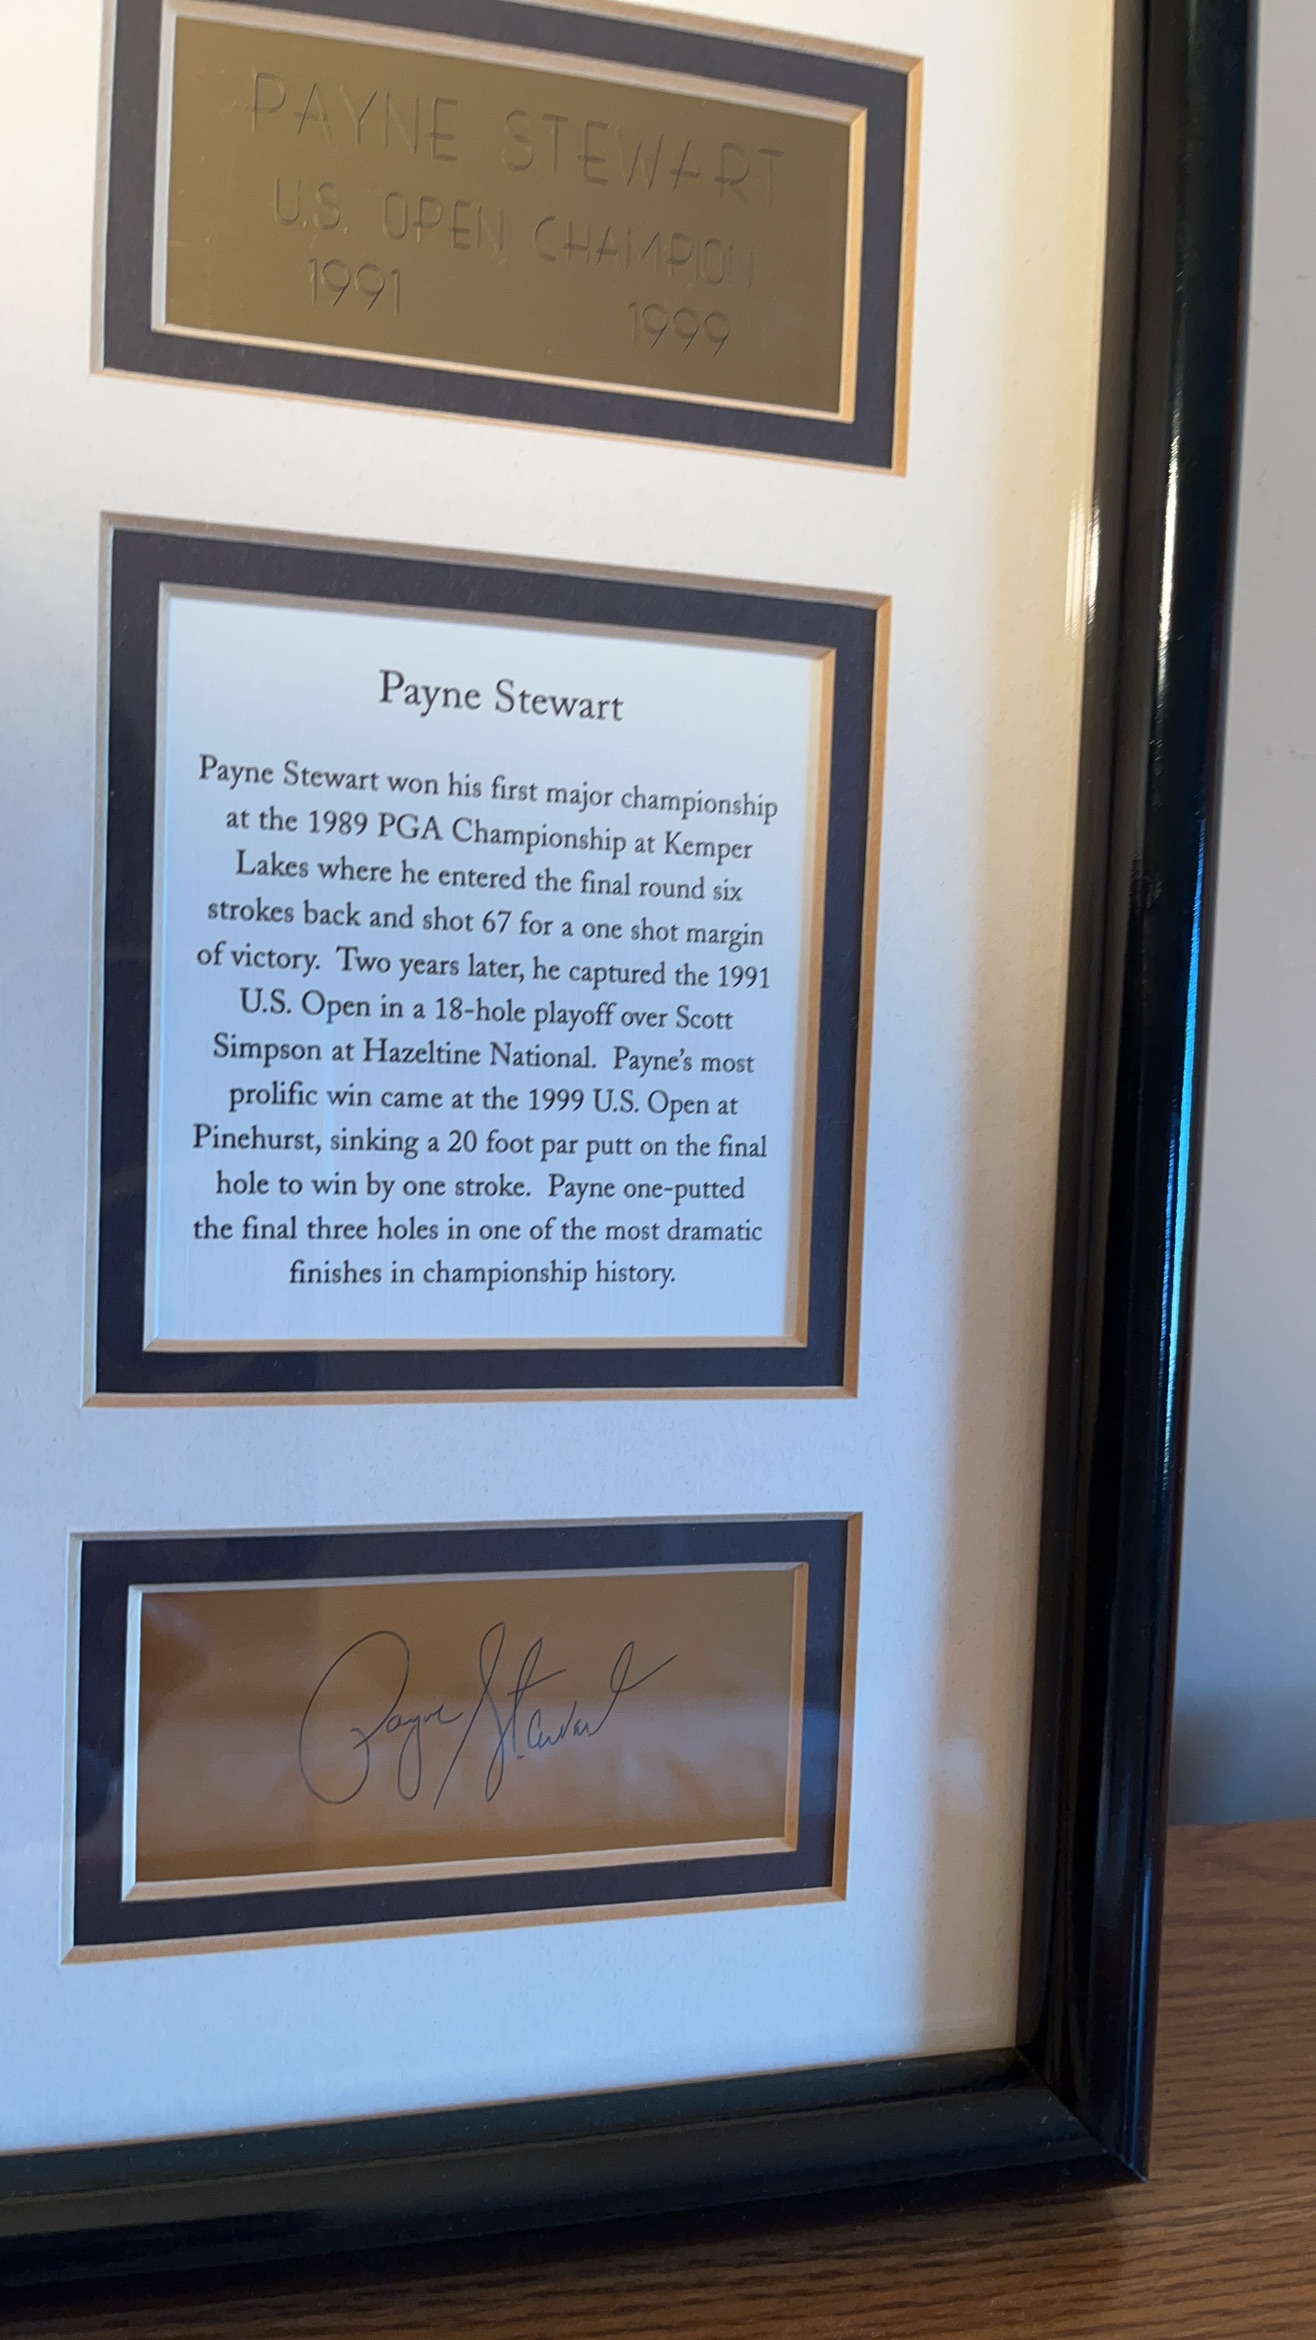 PAYNE STEWART
U.S. OPEN CHAMPION
1991 1999
Payne Stewart
Payne Stewart won his first major championship
at the 1989 PGA Championship at Kemper
Lakes where he entered the final round six
strokes back and shot 67 for a one shot margin
of victory. Two years later, he captured the 1991
U.S. Open in a 18-hole playoff over Scott
Simpson at Hazeltine National. Payne's most
prolific win came at the 1999 U.S. Open at
Pinehurst, sinking a 20 foot par putt on the final
hole to win by one stroke. Payne one-putted
the final three holes in one of the most dramatic
finishes in championship history.
Payne Stewart